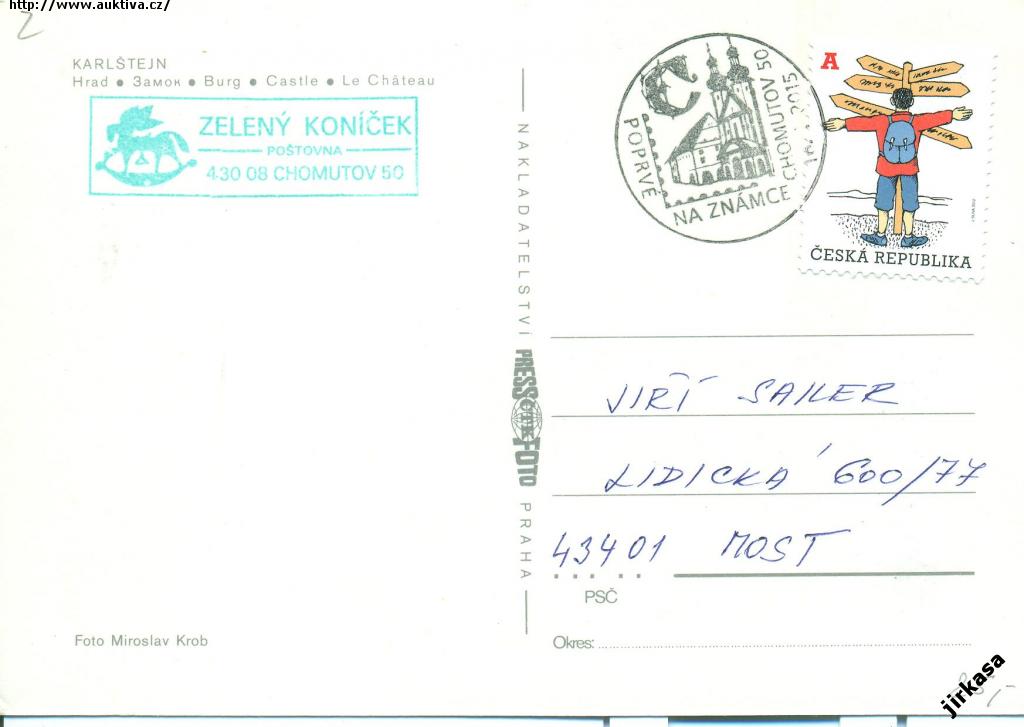 http://www.auktiva.cz/
2
KARLŠTEJN
Hrad ● Замок ● Burg ● Castle ● Le Château
ZELENÝ KONÍČEK
POŠTOVNA
430 08 CHOMUTOV 50
POPRVÉ NA ZNÁMCE CHOMUTOV 50
2015
A
ČESKÁ REPUBLIKA
NAKLADATELSTVÍ PRESSFOTO PRAHA
ČTK
JIŘÍ SAILER
LIDICKÁ 600/77
43401 MOST
PSČ
Okres:
Foto Miroslav Krob
jirkasa